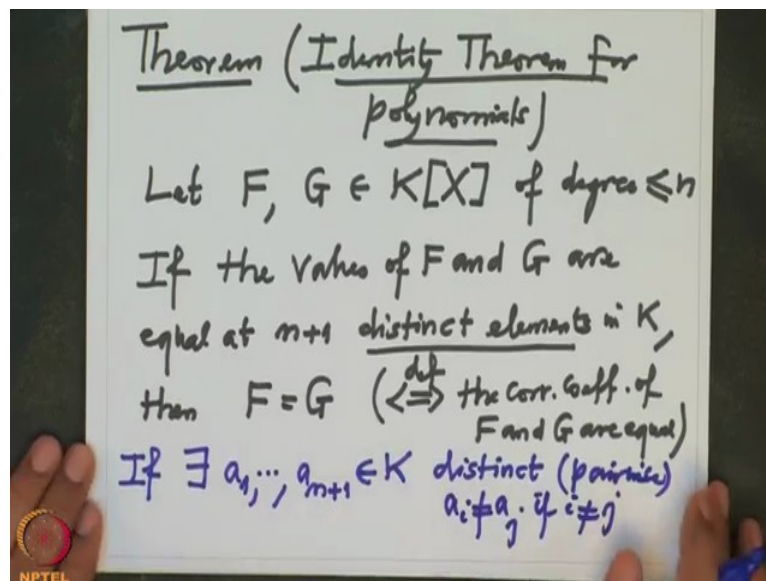 Theorem (Identity Theorem for
polynomials)
Let F, G ∈ K[X] of degree ≤ n
If the values of F and G are
equal at n+1 distinct elements in K,
then F = G (<=>def the corr. coeff. of
F and G are equal)
If ∃ a₁, ..., aₙ₊₁ ∈ K distinct (pairwise)
aᵢ ≠ aⱼ if i ≠ j
NPTEL